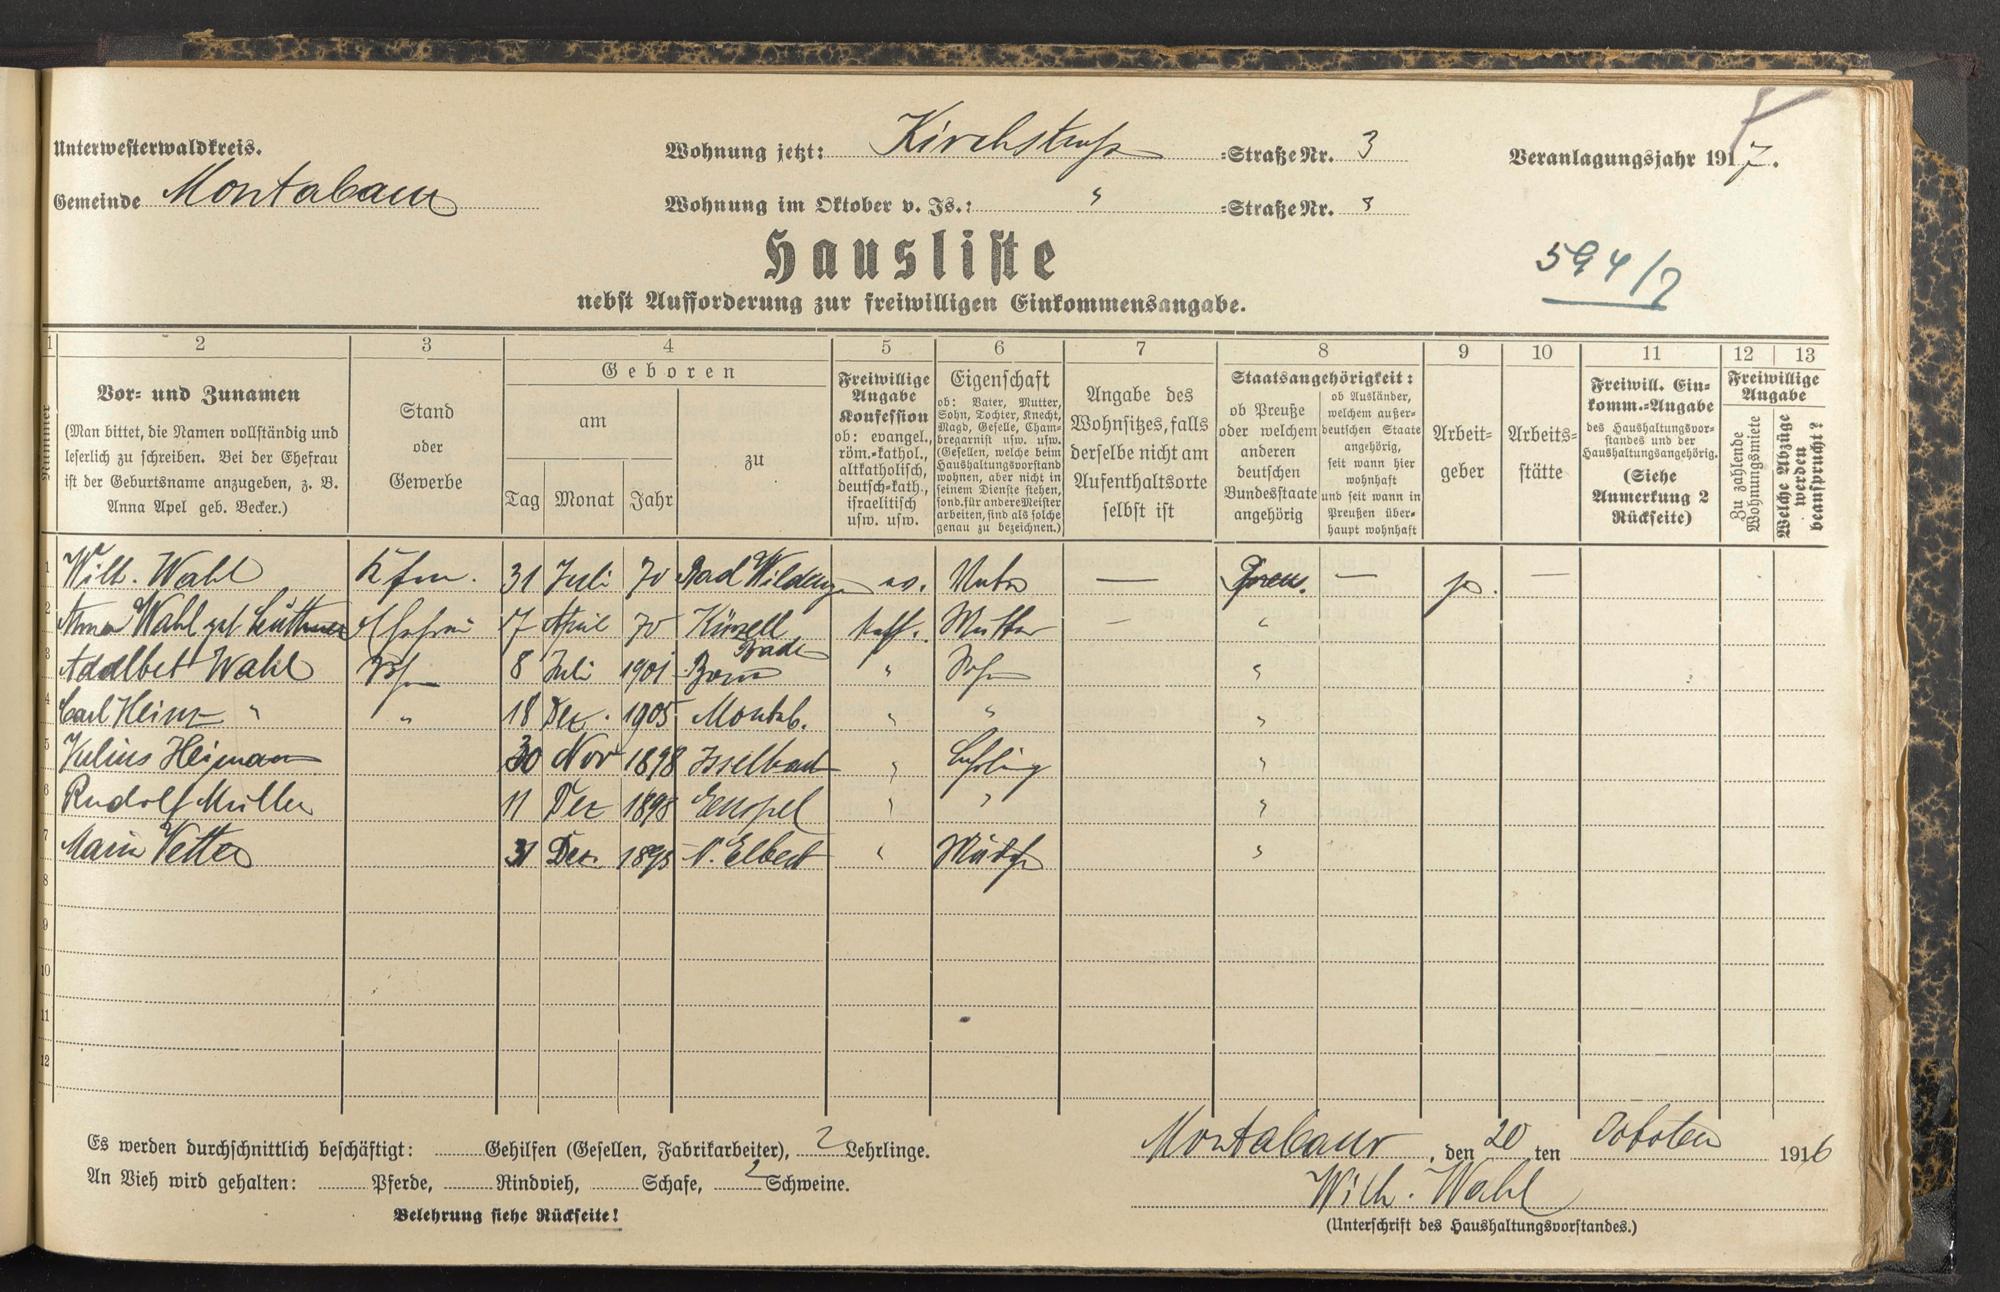 Unterwesterwaldkreis.
Gemeinde Montabaur
Wohnung jetzt: Kirchstraße =Straße Nr. 3
Wohnung im Oktober v. Js.: " =Straße Nr. 3
Veranlagungsjahr 1917.
594/7
Hausliste
nebst Aufforderung zur freiwilligen Einkommensangabe.
1 2 3 4 5 6 7 8 9 10 11 12 13
Nummer
Vor= und Zunamen
(Man bittet, die Namen vollständig und
leserlich zu schreiben. Bei der Ehefrau
ist der Geburtsname anzugeben, z. B.
Anna Apel geb. Becker.)
Stand
oder
Gewerbe
Geboren
am
Tag Monat Jahr
zu
Freiwillige
Angabe
Konfession
ob: evangel.,
röm.=kathol.,
altkatholisch,
deutsch=kath.,
israelitisch
usw. usw.
Eigenschaft
ob: Vater, Mutter,
Sohn, Tochter, Knecht,
Magd, Geselle, Cham=
bregarnist usw. usw.
(Gesellen, welche beim
Haushaltungsvorstand
wohnen, aber nicht in
seinem Dienste stehen,
sond. für andere Meister
arbeiten, sind als solche
genau zu bezeichnen.)
Angabe des
Wohnsitzes, falls
derselbe nicht am
Aufenthaltsorte
selbst ist
Staatsangehörigkeit:
ob Preuße
oder welchem
anderen
deutschen
Bundesstaate
angehörig
ob Ausländer,
welchem außer=
deutschen Staate
angehörig,
seit wann hier
wohnhaft
und seit wann in
Preußen über=
haupt wohnhaft
Arbeit=
geber
Arbeits=
stätte
Freiwill. Ein=
komm.=Angabe
des Haushaltungsvor=
standes und der
Haushaltungsangehörig.
(Siehe
Anmerkung 2
Rückseite)
Freiwillige
Angabe
Zu zahlende
Wohnungsmiete
Welche Abzüge
werden
beansprucht?
1 Wilh. Wahl Kfm. 31 Juli 70 Bad Wildungen ev. Vater — Preus. — —
2 Anna Wahl geb Lüttmer Ehefrau 17 April 70 Kürzell Baden kath. Mutter — "
3 Adalbet Wahl Sohn 8 Juli 1901 Bonn " Sohn "
4 Carl Heinz " " 18 Dez. 1905 Montab. " " "
5 Julius Heimann 30 Nov 1898 Isselbach " Lehrling "
6 Rudolf Müller 11 Dez 1898 " " "
7 Maria Vetter 31 Dez. 1895 N. Elbert " Mädch "
8
9
10
11
12
Es werden durchschnittlich beschäftigt: Gehilfen (Gesellen, Fabrikarbeiter), 2 Lehrlinge.
An Vieh wird gehalten: Pferde, Rindvieh, Schafe, 2 Schweine.
Belehrung siehe Rückseite!
Montabaur, den 20 ten October 1916
Wilh. Wahl
(Unterschrift des Haushaltungsvorstandes.)